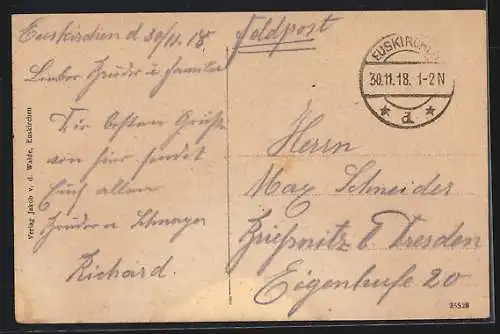 Euskirchen d 30/11.18.
Feldpost
Lieber Bruder u Familie
Die besten Grüße
von hier sendet
Euch allen
Bruder u Schwager
Richard.
EUSKIRCHEN
30.11.18. 1-2 N
* d. *
Herrn
Max Schneider
Brießnitz b. Dresden
Eigenhufe 20
Verlag Jakob v. d. Walde, Euskirchen
25528